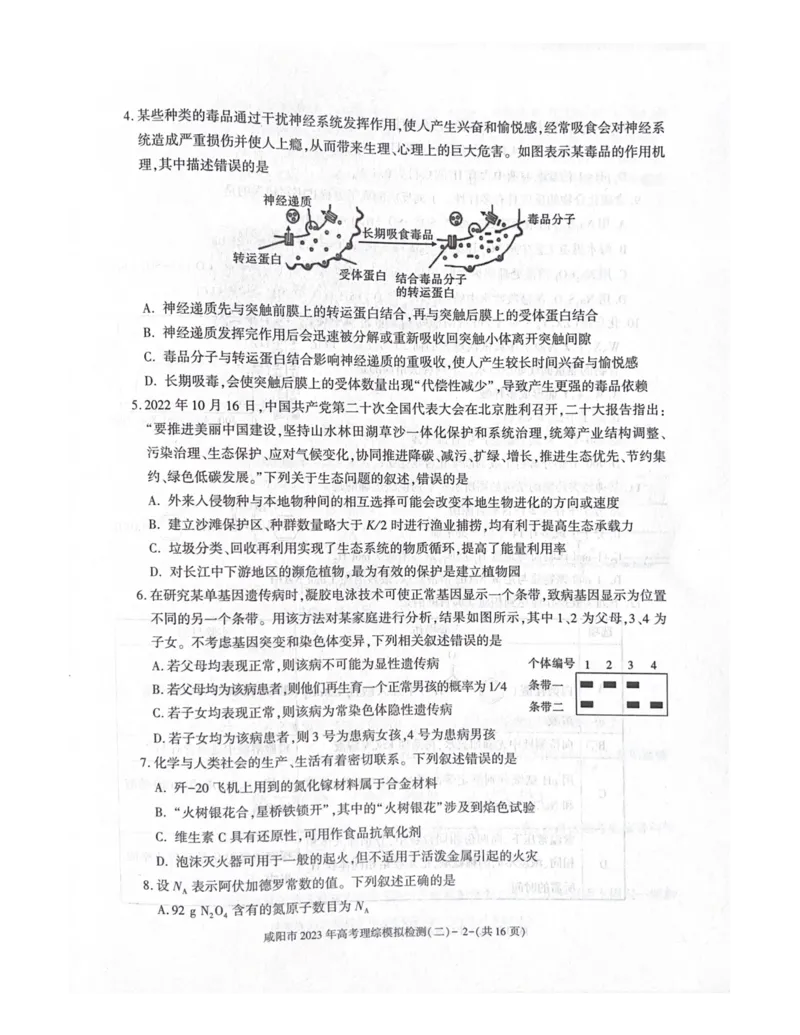 4.某些种类的毒品通过干扰神经系统发挥作用,使人产生兴奋和愉悦感,经常吸食会对神经系
统造成严重损伤并使人上瘾,从而带来生理、心理上的巨大危害。如图表示某毒品的作用机
理,其中描述错误的是
神经递质
毒品分子
长期吸食毒品
转运蛋白
受体蛋白 结合毒品分子
的转运蛋白
A. 神经递质先与突触前膜上的转运蛋白结合,再与突触后膜上的受体蛋白结合
B. 神经递质发挥完作用后会迅速被分解或重新吸收回突触小体离开突触间隙
C. 毒品分子与转运蛋白结合影响神经递质的重吸收,使人产生较长时间兴奋与愉悦感
D. 长期吸毒,会使突触后膜上的受体数量出现“代偿性减少”,导致产生更强的毒品依赖
5.2022 年 10 月 16 日,中国共产党第二十次全国代表大会在北京胜利召开,二十大报告指出:
“要推进美丽中国建设,坚持山水林田湖草沙一体化保护和系统治理,统筹产业结构调整、
污染治理、生态保护、应对气候变化,协同推进降碳、减污、扩绿、增长,推进生态优先、节约集
约、绿色低碳发展。”下列关于生态问题的叙述,错误的是
A. 外来入侵物种与本地物种间的相互选择可能会改变本地生物进化的方向或速度
B. 建立沙滩保护区、种群数量略大于 K/2 时进行渔业捕捞,均有利于提高生态承载力
C. 垃圾分类、回收再利用实现了生态系统的物质循环,提高了能量利用率
D. 对长江中下游地区的濒危植物,最为有效的保护是建立植物园
6.在研究某单基因遗传病时,凝胶电泳技术可使正常基因显示一个条带,致病基因显示为位置
不同的另一个条带。用该方法对某家庭进行分析,结果如图所示,其中 1、2 为父母,3、4 为
子女。不考虑基因突变和染色体变异,下列相关叙述错误的是
A.若父母均表现正常,则该病不可能为显性遗传病
B.若父母均为该病患者,则他们再生育一个正常男孩的概率为 1/4
C.若子女均表现正常,则该病为常染色体隐性遗传病
D.若子女均为该病患者,则 3 号为患病女孩,4 号为患病男孩
个体编号 1 2 3 4
条带一
条带二
7.化学与人类社会的生产、生活有着密切联系。下列叙述错误的是
A. 歼-20 飞机上用到的氮化镓材料属于合金材料
B. “火树银花合,星桥铁锁开”,其中的“火树银花”涉及到焰色试验
C. 维生素 C 具有还原性,可用作食品抗氧化剂
D. 泡沫灭火器可用于一般的起火,但不适用于活泼金属引起的火灾
8.设 N_A 表示阿伏加德罗常数的值。下列叙述正确的是
A.92 g N₂O₄ 含有的氮原子数目为 N_A
咸阳市 2023 年高考理综模拟检测(二)- 2-(共 16 页)